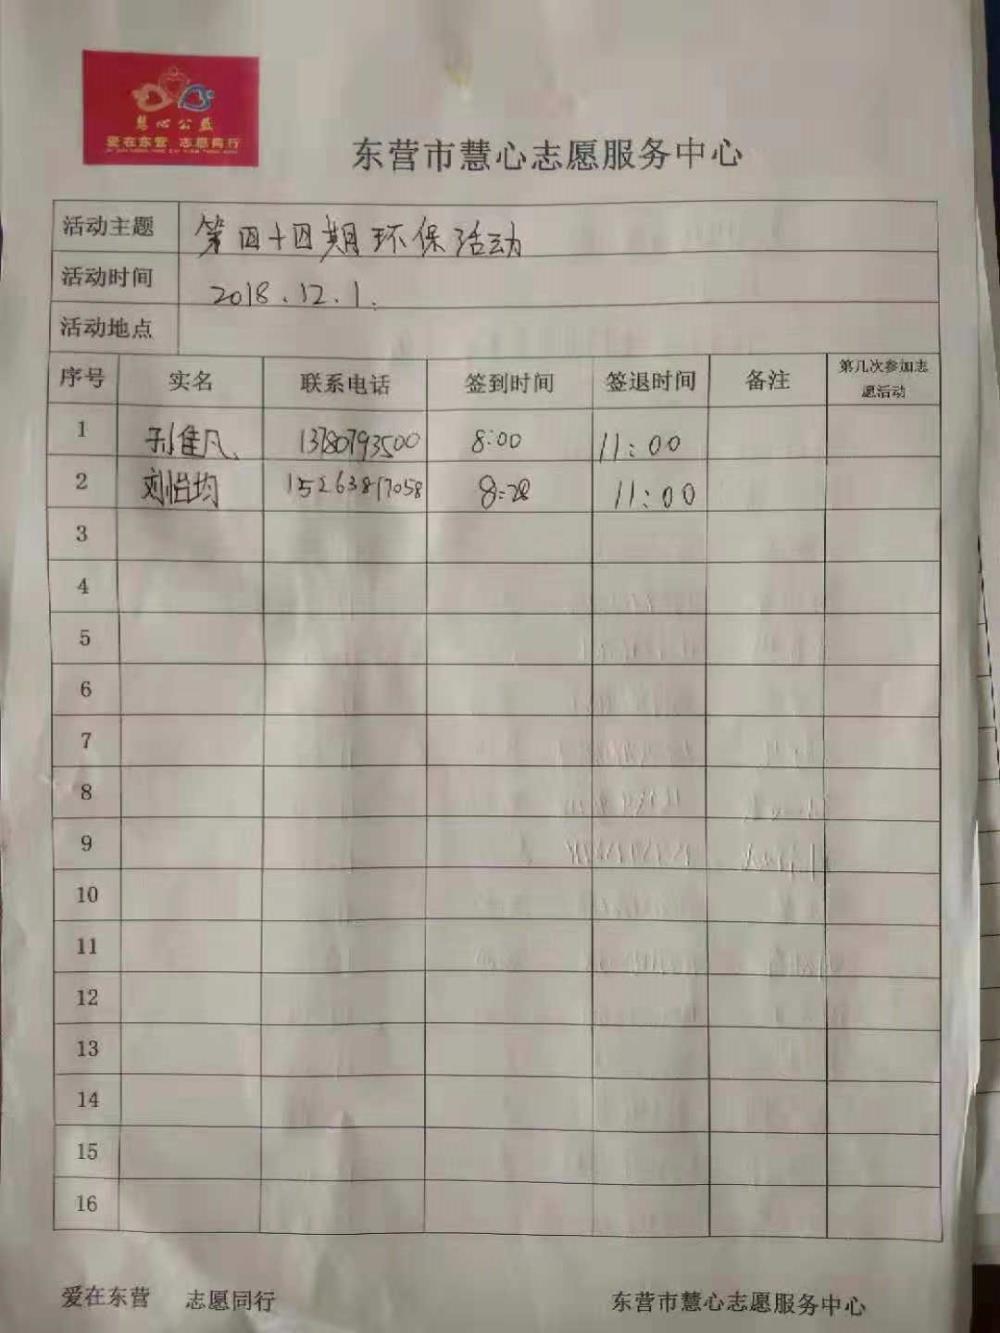 慧心公益
爱在东营 志愿同行
东营市慧心志愿服务中心
活动主题 第四十四期环保活动
活动时间 2018.12.1.
活动地点
序号 实名 联系电话 签到时间 签退时间 备注 第几次参加志愿活动
1 孙佳凡 13780793500 8:00 11:00
2 刘怡均 15263817058 8:28 11:00
3
4
5
6
7
8
9
10
11
12
13
14
15
16
爱在东营 志愿同行 东营市慧心志愿服务中心